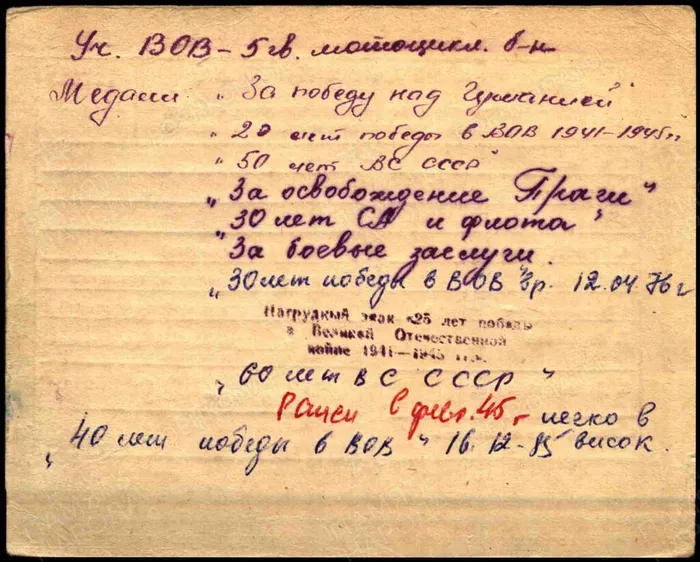 Уч. ВОВ – 5 гв. мотоцикл. б-н
Медали „За победу над Германией"
„20 лет победы в ВОВ 1941–1945 гг
„50 лет ВС СССР"
„За освобождение Праги"
„30 лет СА и флота"
„За боевые заслуги.
„30 лет победы в ВОВ" вр. 12.04.76 г
Нагрудный знак «25 лет победы
в Великой Отечественной
войне 1941—1945 гг».
„60 лет ВС СССР"
Ранен в февр. 45 г легко в
„40 лет победы в ВОВ" 16.12-85 висок